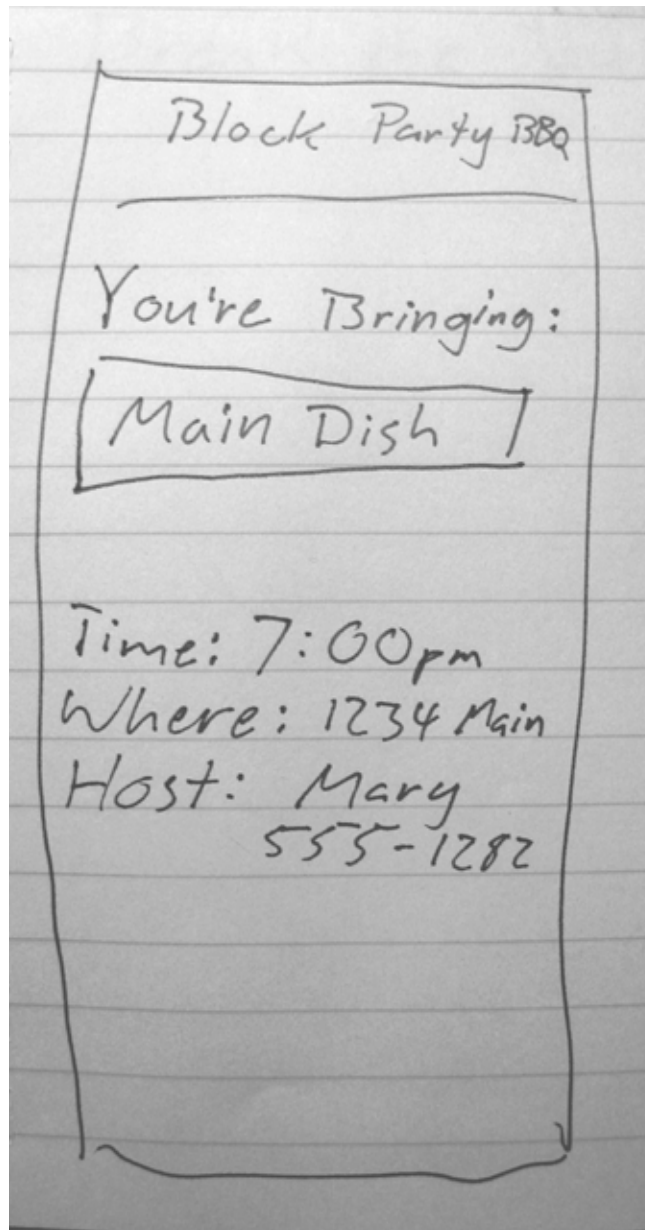 Block Party BBQ
You're Bringing:
Main Dish
Time: 7:00pm
Where: 1234 Main
Host: Mary
555-1282